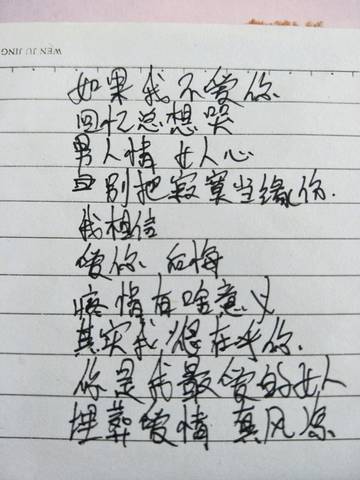 WEN JU JING
如果我不爱你
回忆总想哭
男人情 女人心
且别把寂寞当缘份.
我相信
爱你 后悔
疼情有啥意义
其实我很在乎你.
你是我最爱的女人
埋葬爱情 真风凉